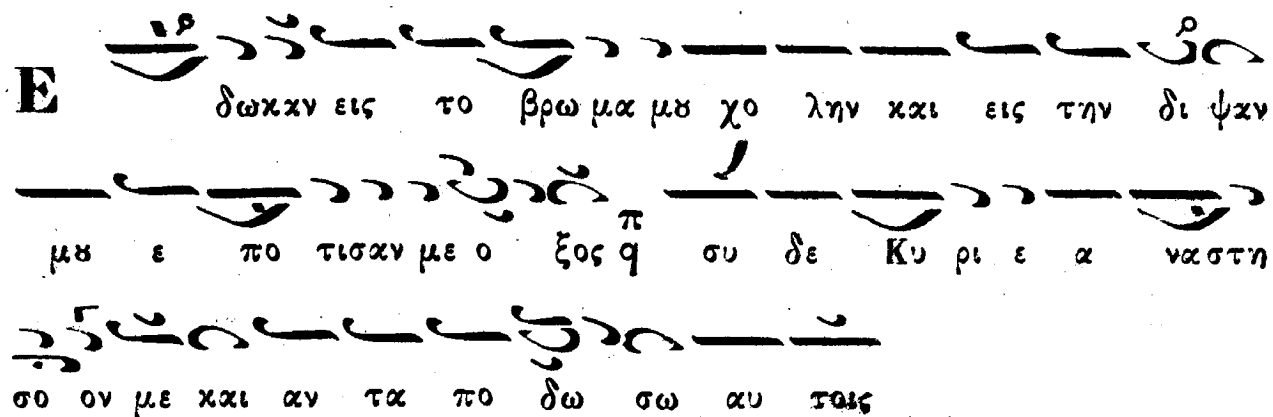 Ε δωκαν εις το βρω μα μȣ χο λην και εις την δι ψαν
μȣ ε πο τισαν με ο ξος π̅ q συ δε Κυ ρι ε α να στη
σο ον με και αν τα πο δω σω αυ τοις